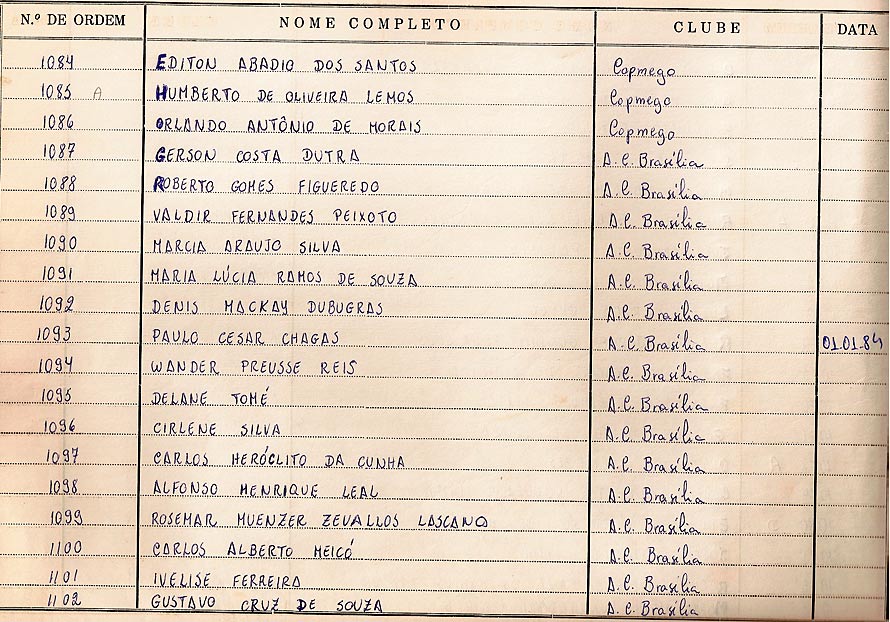 N.º DE ORDEM NOME COMPLETO CLUBE DATA
1084 EDITON ABADIO DOS SANTOS Copmego
1085 A HUMBERTO DE OLIVEIRA LEMOS Copmego
1086 ORLANDO ANTÔNIO DE MORAIS Copmego
1087 GERSON COSTA DUTRA A.C. Brasília
1088 ROBERTO GOMES FIGUEREDO A.C. Brasília
1089 VALDIR FERNANDES PEIXOTO A.C. Brasília
1090 MARCIA ARAUJO SILVA A.C. Brasília
1091 MARIA LÚCIA RAMOS DE SOUZA A.C. Brasília
1092 DENIS MACKAY DUBUGRAS A.C. Brasília
1093 PAULO CESAR CHAGAS A.C. Brasília 01.01.84
1094 WANDER PREUSSE REIS A.C. Brasília
1095 DELANE TOMÉ A.C. Brasília
1096 CIRLENE SILVA A.C. Brasília
1097 CARLOS HERÓCLITO DA CUNHA A.C. Brasília
1098 ALFONSO HENRIQUE LEAL A.C. Brasília
1099 ROSEMAR MUENZER ZEVALLOS LASCANO A.C. Brasília
1100 CARLOS ALBERTO MEICÓ A.C. Brasília
1101 IVELISE FERREIRA A.C. Brasília
1102 GUSTAVO CRUZ DE SOUZA A.C. Brasília